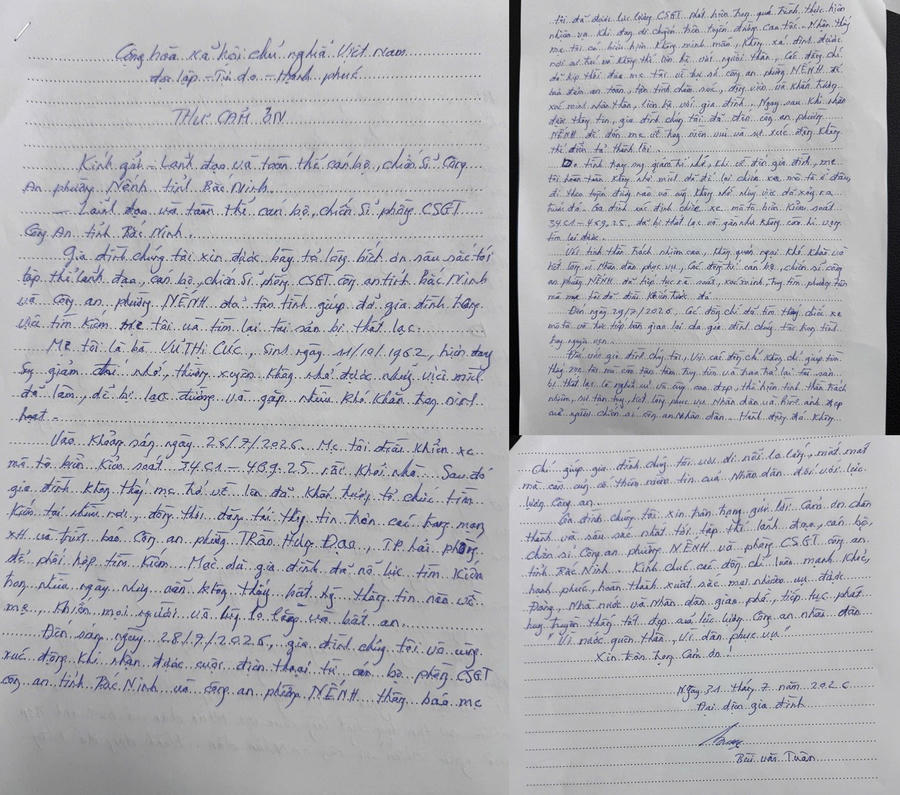 Cộng hòa xã hội chủ nghĩa Việt Nam
độc lập - Tự do - Hạnh phúc
THƯ CẢM ƠN
Kính gửi - Lãnh đạo và toàn thể cán bộ, chiến sĩ Công
An phường Nếnh tỉnh Bắc Ninh.
- Lãnh đạo và toàn thể cán bộ, chiến sĩ phòng CSGT
Công An tỉnh Bắc Ninh.
Gia đình chúng tôi xin được bày tỏ lòng biết ơn sâu sắc tới
tập thể lãnh đạo, cán bộ, chiến sĩ phòng CSGT công an tỉnh Bắc Ninh
và Công an phường NẾNH đã tận tình giúp đỡ gia đình trong
việc tìm kiếm mẹ tôi và tìm lại tài sản bị thất lạc.
Mẹ tôi là bà VŨ THỊ CÚC, sinh ngày 11/10/1962, hiện đang
suy giảm trí nhớ, thường xuyên không nhớ được những việc mình
đã làm, dễ bị lạc đường và gặp nhiều khó khăn trong sinh
hoạt.
Vào khoảng sáng ngày 26/7/2026. Mẹ tôi điều khiển xe
mô tô biển kiểm soát 34C1-439.25 rời khỏi nhà. Sau đó
gia đình không thấy mẹ trở về lên đã khẩn trương tổ chức tìm
kiếm tại nhiều nơi, đồng thời đăng tải thông tin trên các trang mạng
XH và trình báo Công an phường TRần Hưng ĐẠO, T.P hải phòng
để phối hợp tìm kiếm. Mặc dù gia đình đã nỗ lực tìm kiếm
trong nhiều ngày nhưng vẫn không thấy bất kỳ thông tin nào về
mẹ, khiến mọi người vô cùng lo lắng và bất an.
Đến sáng ngày 28/7/2026, gia đình chúng tôi vô cùng
xúc động khi nhận được cuộc điện thoại từ cán bộ phòng CSGT
công an tỉnh Bắc Ninh và công an phường NẾNH thông báo mẹ
tôi đã được lực lượng CSGT phát hiện trong quá trình thực hiện
nhiệm vụ khi đang di chuyển trên tuyến đường cao tốc. Nhận thấy
mẹ tôi có biểu hiện không minh mẫn, không xác định được
nơi cư trú và không thể liên hệ với người thân, các đồng chí
đã kịp thời đưa mẹ tôi về trụ sở công an phường NẾNH để
bảo đảm an toàn, tận tình chăm sóc, động viên và khẩn trương
xác minh nhân thân, liên hệ với gia đình. Ngay sau khi nhận
được thông tin, gia đình chúng tôi đã đến công an phường
NẾNH để đón mẹ về trong niềm vui và sự xúc động không
thể diễn tả thành lời.
Do tình trạng suy giảm trí nhớ, khi về đến gia đình, mẹ
tôi hoàn toàn không nhớ mình đã để lại chiếc xe mô tô ở đâu,
đi theo tuyến đường nào và cũng không nhớ những việc đã xảy ra
trước đó. Gia đình xác định chiếc xe mô tô biển kiểm soát
34C1-439.25 đã bị thất lạc và gần như không còn hi vọng
tìm lại được.
Với tinh thần trách nhiệm cao, không quản ngại khó khăn và
hết lòng vì Nhân dân phục vụ, các đồng chí cán bộ, chiến sĩ công
an phường NẾNH đã tiếp tục rà soát, xác minh, truy tìm phương tiện
mà mẹ tôi đã điều khiển trước đó.
Đến ngày 29/7/2026, các đồng chí đã tìm thấy chiếc xe
mô tô và trực tiếp bàn giao lại cho gia đình chúng tôi trong tình
trạng nguyên vẹn.
Đối với gia đình chúng tôi, việc các đồng chí không chỉ giúp tìm
thấy mẹ tôi mà còn tận tâm truy tìm và trao trả lại tài sản
bị thất lạc là nghĩa cử vô cùng cao đẹp, thể hiện tinh thần trách
nhiệm, sự tận tụy, hết lòng phục vụ Nhân dân và hình ảnh đẹp
của người chiến sĩ công an Nhân dân. Hành động đó không
chỉ giúp gia đình chúng tôi vơi đi nỗi lo lắng, mất mát
mà còn củng cố thêm niềm tin của Nhân dân đối với lực
lượng Công an.
Gia đình chúng tôi xin trân trọng gửi lời cảm ơn chân
thành và sâu sắc nhất tới tập thể lãnh đạo, cán bộ,
chiến sĩ Công an phường NẾNH và phòng CSGT công an
tỉnh Bắc Ninh. Kính chúc các đồng chí luôn mạnh khỏe,
hạnh phúc, hoàn thành xuất sắc mọi nhiệm vụ được
Đảng, Nhà nước và Nhân dân giao phó, tiếp tục phát
huy truyền thống tốt đẹp của lực lượng Công an nhân dân
"Vì nước quên thân, Vì dân phục vụ"
Xin trân trọng cảm ơn!
Ngày 31 tháng 7 năm 2026
Đại diện gia đình
Bùi Văn Tuân